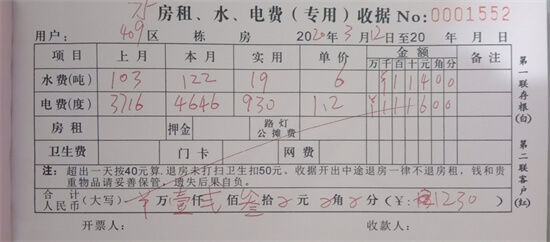 房租、水、电费(专用)收据 No:0001552
用户: 409 区 栋 房 2020年3月12日至20 年 月 日
项目 上月 本月 实用 单价 金额 备注
万 千 百 十 元 角 分
水费(吨) 103 122 19 6 ¥ 1 1 4 0 0
电费(度) 3716 4646 930 1.2 ¥ 1 1 1 6 0 0
房租 押金 路灯公摊费
卫生费 门卡 网费
注: 超出一天按40元算.退房未打扫卫生扣50元。收据开出中途退房一律不退房租,钱和贵重物品请妥善保管,遗失后果自负。
合计人民币(大写) 万壹仟 贰 佰 叁 拾 0 元 0 角 0 分(¥: 1230 )
开票人: 收款人:
第一联存根(白) 第二联客户(红)